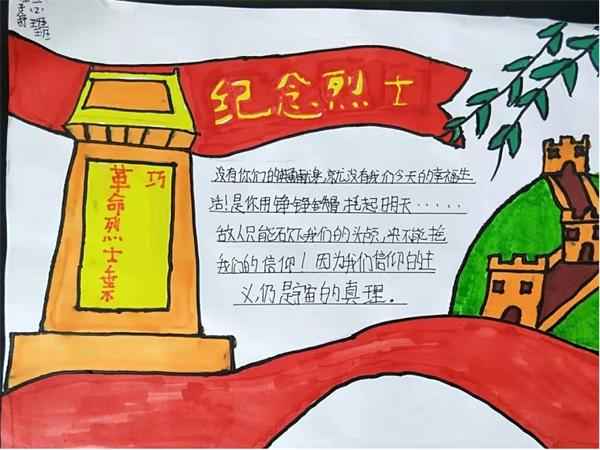 纪念烈士
革命烈士垂
没有你们的，就没有我们今天的幸福生
活!是你用铮铮骨托起明天······
敌人只能砍下我们的头颅,决不能摇
我们的信仰!因为我们信仰的主
义,仍是宇宙的真理.